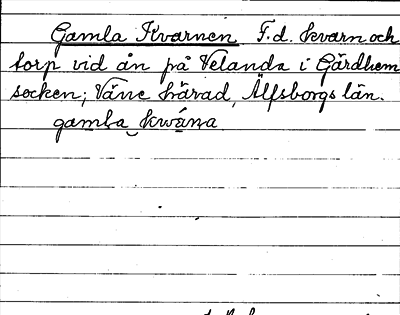 Gamla Kvarnen F.d. kvarn och
torp vid ån på Velanda i Gärdhem
socken; Väne härad, Älfsborgs län.
gamla kwá̱ṇa